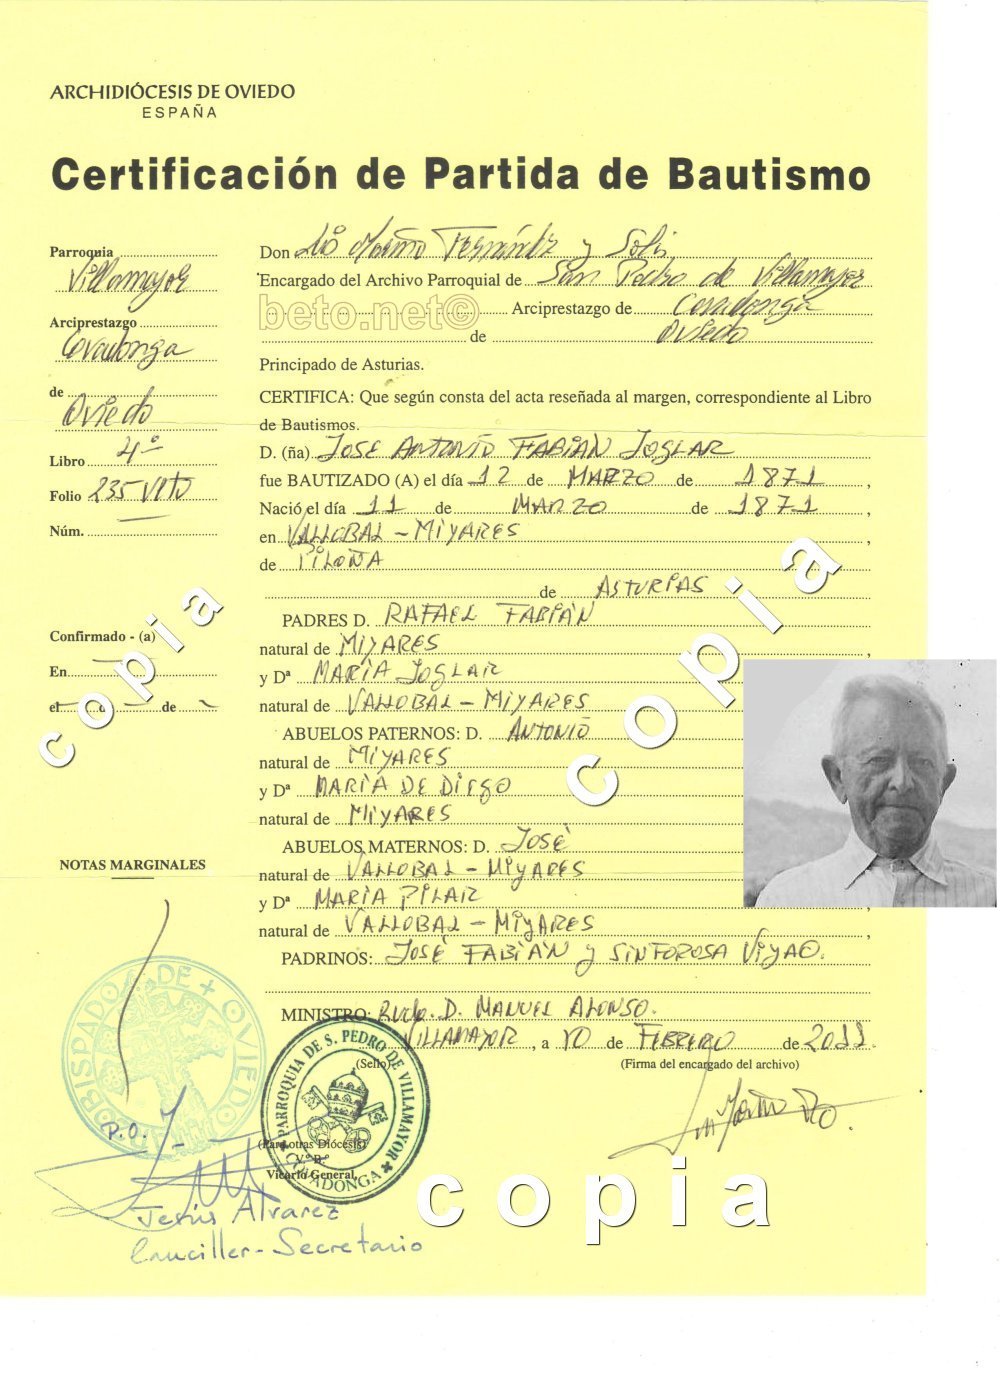 ARCHIDIÓCESIS DE OVIEDO
ESPAÑA
Certificación de Partida de Bautismo
Parroquia
Villamayor
Arciprestazgo
Covadonga
de
Oviedo
Libro 4º
Folio 235 Vto
Núm.
Confirmado - (a)
En
el de
NOTAS MARGINALES
Don Fernández y Solis
Encargado del Archivo Parroquial de San Pedro de Villamayor
beto.net© Arciprestazgo de Covadonga
de Oviedo
Principado de Asturias.
CERTIFICA: Que según consta del acta reseñada al margen, correspondiente al Libro
de Bautismos.
D. (ña) JOSE ANTONIO FABIAN JOGLAR
fue BAUTIZADO (A) el día 12 de MARZO de 1871,
Nació el día 11 de MARZO de 1871,
en VALLOBAL - MIYARES,
de PILOÑA
de ASTURIAS
PADRES D. RAFAEL FABIÁN
natural de MIYARES,
y Dª MARÍA JOGLAR
natural de VALLOBAL - MIYARES
ABUELOS PATERNOS: D. ANTONIO
natural de MIYARES
y Dª MARÍA DE DIEGO
natural de MIYARES
ABUELOS MATERNOS: D. JOSÉ
natural de VALLOBAL - MIYARES
y Dª MARÍA PILAR
natural de VALLOBAL - MIYARES,
PADRINOS: JOSÉ FABIÁN y SINFOROSA VIYAO.
MINISTRO: Rvdo. D. MANUEL ALONSO.
VILLAMAYOR, a 10 de FEBRERO de 2011.
(Sello)
(Firma del encargado del archivo)
ARZOBISPADO DE OVIEDO
PARROQUIA DE S. PEDRO DE VILLAMAYOR
COVADONGA
P.O.
(Para otras Diócesis)
V.º B.º
Vicario General,
Jesús Alvarez
Canciller - Secretario
copia
copia
copia